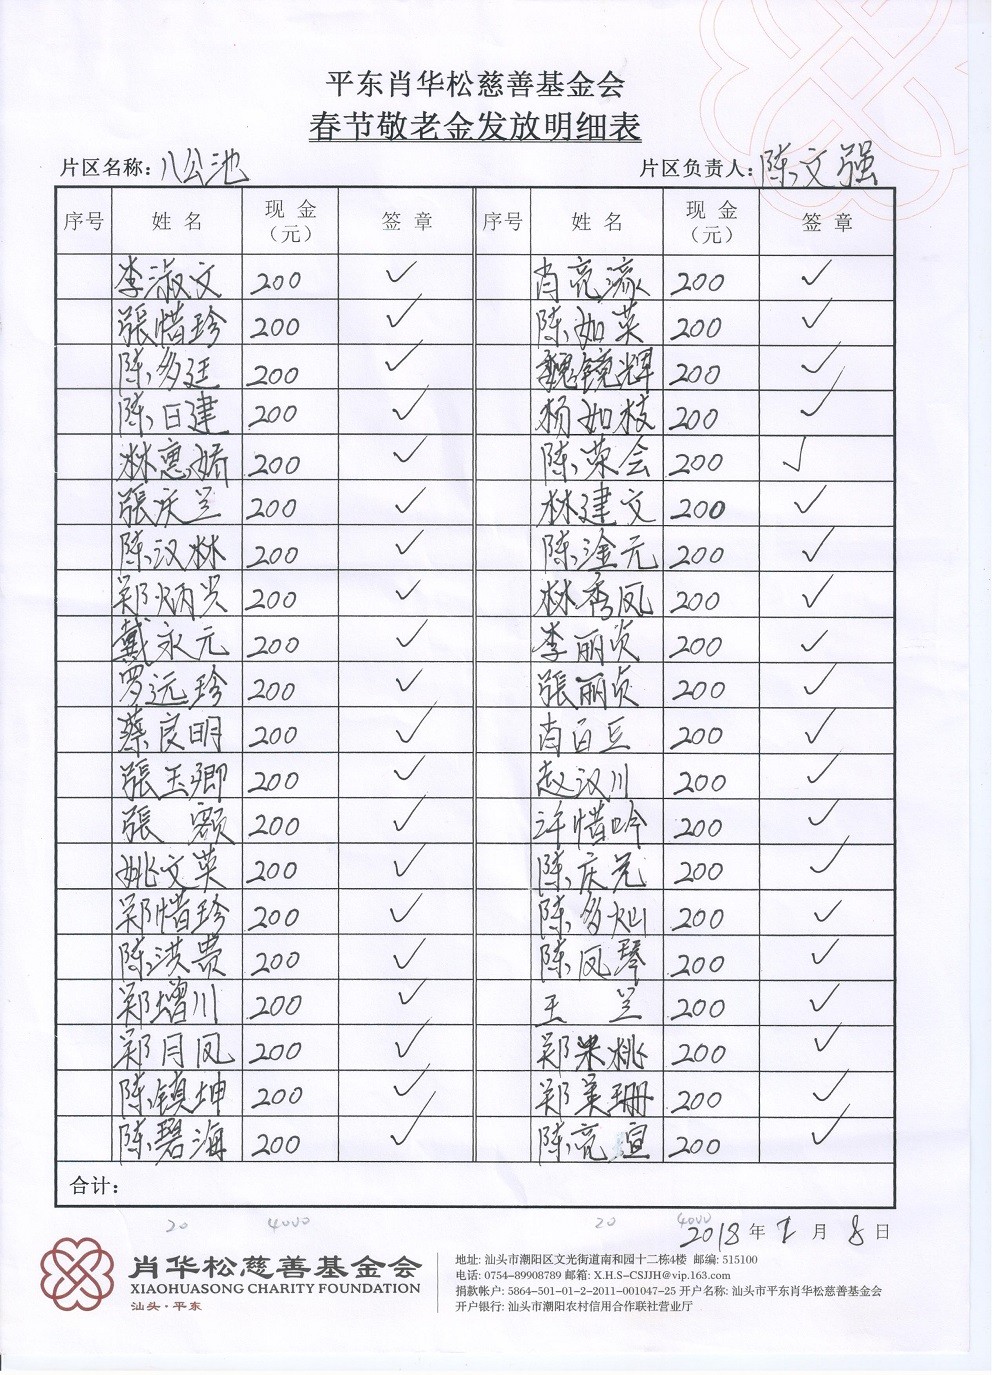 平东肖华松慈善基金会
春节敬老金发放明细表
片区名称：八公池 片区负责人：陈文强
序号 姓名 现金（元） 签章 序号 姓名 现金（元） 签章
李淑文 200 ✓ 肖亮濠 200 ✓
張惜珍 200 ✓ 陈如英 200 ✓
陈多廷 200 ✓ 魏镜辉 200 ✓
陈日建 200 ✓ 杨如枝 200 ✓
林惠娇 200 ✓ 陈荣会 200 ✓
張庆兰 200 ✓ 林建文 200 ✓
陈汉林 200 ✓ 陈淦元 200 ✓
郑炳兴 200 ✓ 林秀凤 200 ✓
戴永元 200 ✓ 李丽贞 200 ✓
罗远珍 200 ✓ 張丽贞 200 ✓
蔡良明 200 ✓ 肖百豆 200 ✓
張玉卿 200 ✓ 赵汉川 200 ✓
張 额 200 ✓ 许惜吟 200 ✓
姚文英 200 ✓ 陈庆光 200 ✓
郑惜珍 200 ✓ 陈多灿 200 ✓
陈洪贵 200 ✓ 陈凤琴 200 ✓
郑增川 200 ✓ 王 兰 200 ✓
郑月凤 200 ✓ 郑米桃 200 ✓
陈镇坤 200 ✓ 郑美珊 200 ✓
陈碧海 200 ✓ 陈亮宣 200 ✓
合计：
20 4000 20 4000
2018年 月 8日
肖华松慈善基金会
XIAOHUASONG CHARITY FOUNDATION
汕头·平东
地址: 汕头市潮阳区文光街道南和园十二栋4楼 邮编: 515100
电话: 0754-89908789 邮箱: X.H.S-CSJJH@vip.163.com
捐款帐户: 5864-501-01-2-2011-001047-25 开户名称: 汕头市平东肖华松慈善基金会
开户银行: 汕头市潮阳农村信用合作联社营业厅